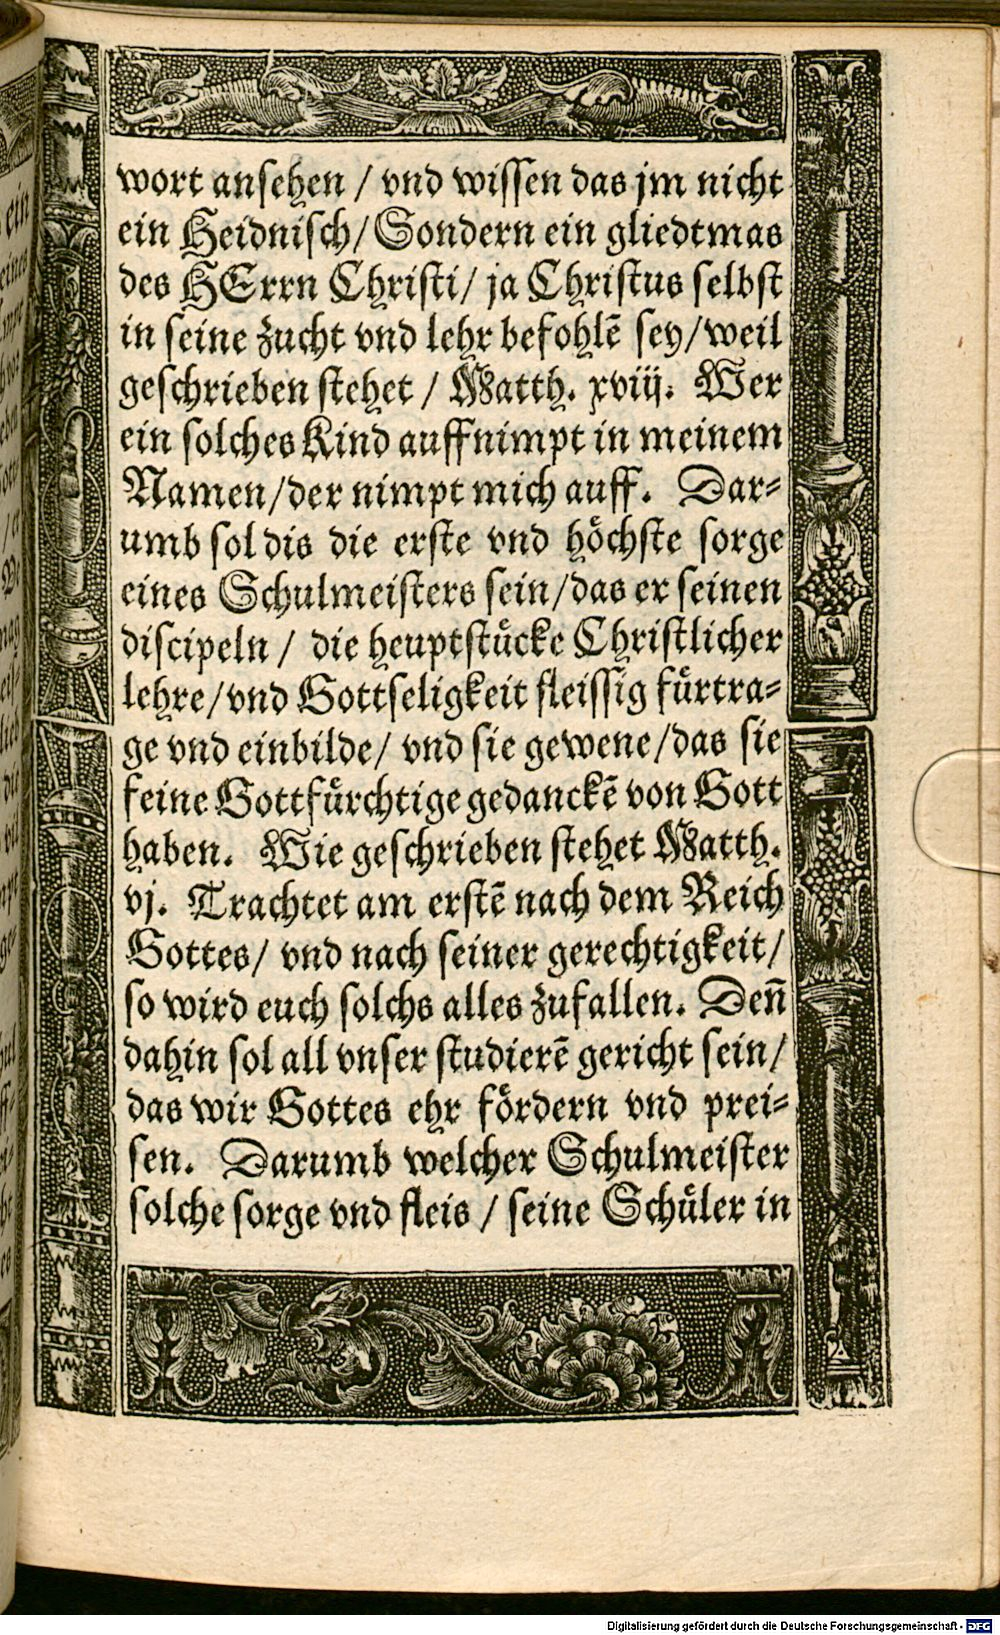 wort ansehen / vnd wissen das jm nicht
ein Heidnisch / Sondern ein gliedtmas
des HErrn Christi / ja Christus selbst
in seine zucht vnd lehr befohlē sey / weil
geschrieben stehet / Matth. xviij. Wer
ein solches Kind auffnimpt in meinem
Namen / der nimpt mich auff. Dar=
umb sol dis die erste vnd höchste sorge
eines Schulmeisters sein / das er seinen
discipeln / die heuptstücke Christlicher
lehre / vnd Gottseligkeit fleissig fürtra=
ge vnd einbilde / vnd sie gewene / das sie
feine Gottfürchtige gedanckē von Gott
haben. Wie geschrieben stehet Matth.
vj. Trachtet am erstē nach dem Reich
Gottes / vnd nach seiner gerechtigkeit /
so wird euch solchs alles zufallen. Deñ
dahin sol all vnser studierē gericht sein /
das wir Gottes ehr fördern vnd prei=
sen. Darumb welcher Schulmeister
solche sorge vnd fleis / seine Schüler in
Digitalisierung gefördert durch die Deutsche Forschungsgemeinschaft - DFG